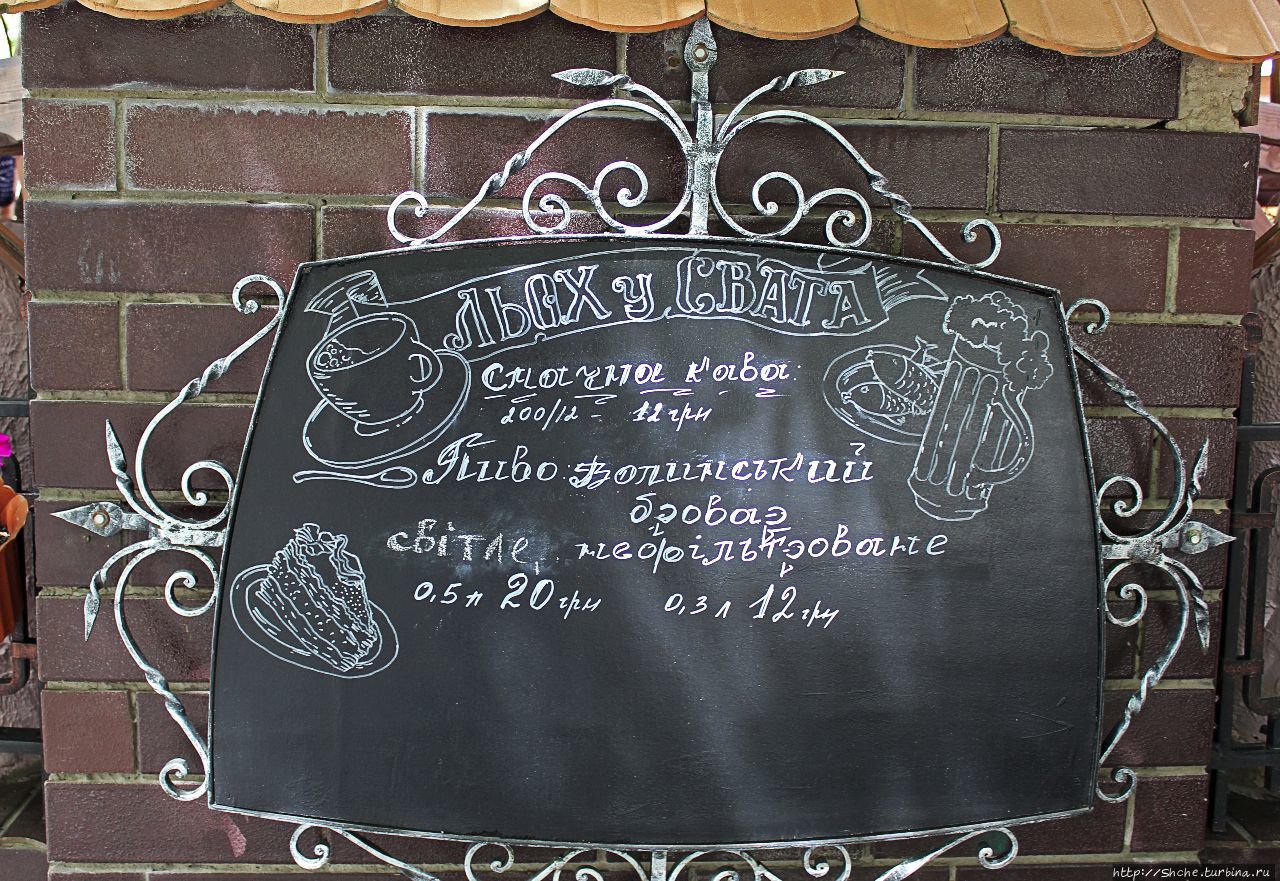 ЛЬОХ у СВАТА
Смачна кава:
200/12 - 12 грн
Пиво: Волинський
бровар
світле, нефільтроване
0,5 л 20 грн 0,3 л 12 грн
http://Shche.turbina.ru